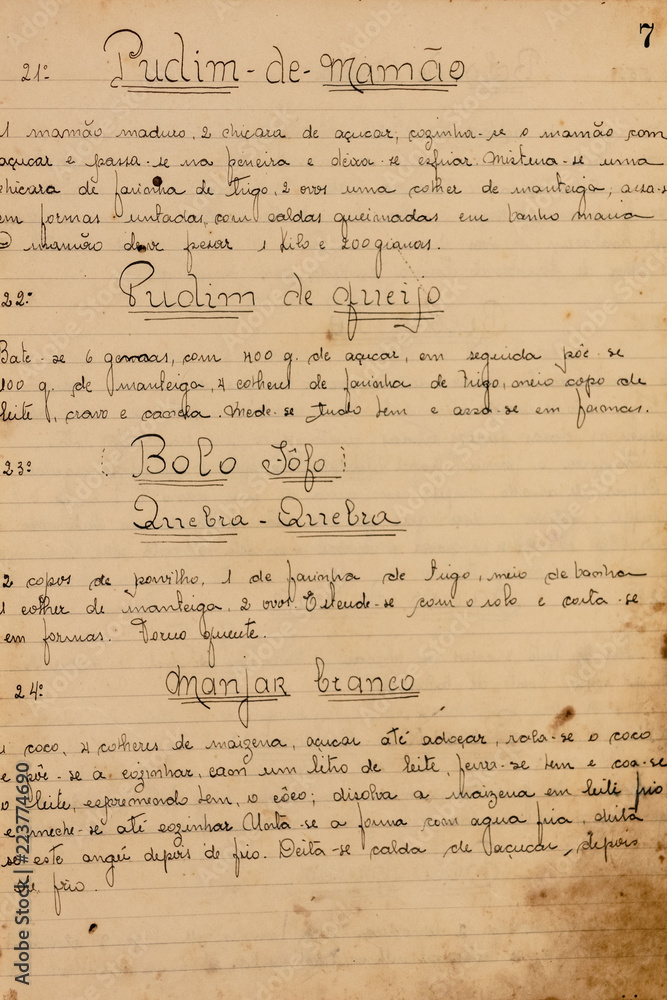 7
21º Pudim-de-Mamão
1 mamão maduro, 2 chicara de açucar, cozinha-se o mamão com
açucar e passa-se na peneira e deixa-se esfriar. Mistura-se uma
chicara de farinha de trigo, 2 ovos uma colher de manteiga, assa-s
em formas untadas, com caldas queimadas em banho maria
O mamão deve pesar 1 kilo e 200 gramas.
22º Pudim de queijo
Bate-se 6 gemas, com 400 g. de açucar, em seguida põe-se
100 g. de manteiga, 4 colheres de farinha de trigo, meio copo de
leite, cravo e canela. Mede-se tudo bem e assa-se em formas.
23º Bolo Fôfo
Quebra-Quebra
2 copos de polvilho, 1 de farinha de trigo, meio de banha
1 colher de manteiga, 2 ovos. Estende-se com o rolo e corta-se
em formas. Forno quente.
24º Manjar branco
1 coco, 4 colheres de maizena, açucar até adoçar, rala-se o coco
e põe-se a cozinhar, com um litro de leite, ferve-se bem e coa-se
o leite, espremendo bem, o côco; disolva a maizena em leite frio
e meche-se até cozinhar Unta-se a forma com agua fria, deita
se este angú depois de frio. Deita-se calda de açucar, depois
de frio.
Adobe Stock | #223774690